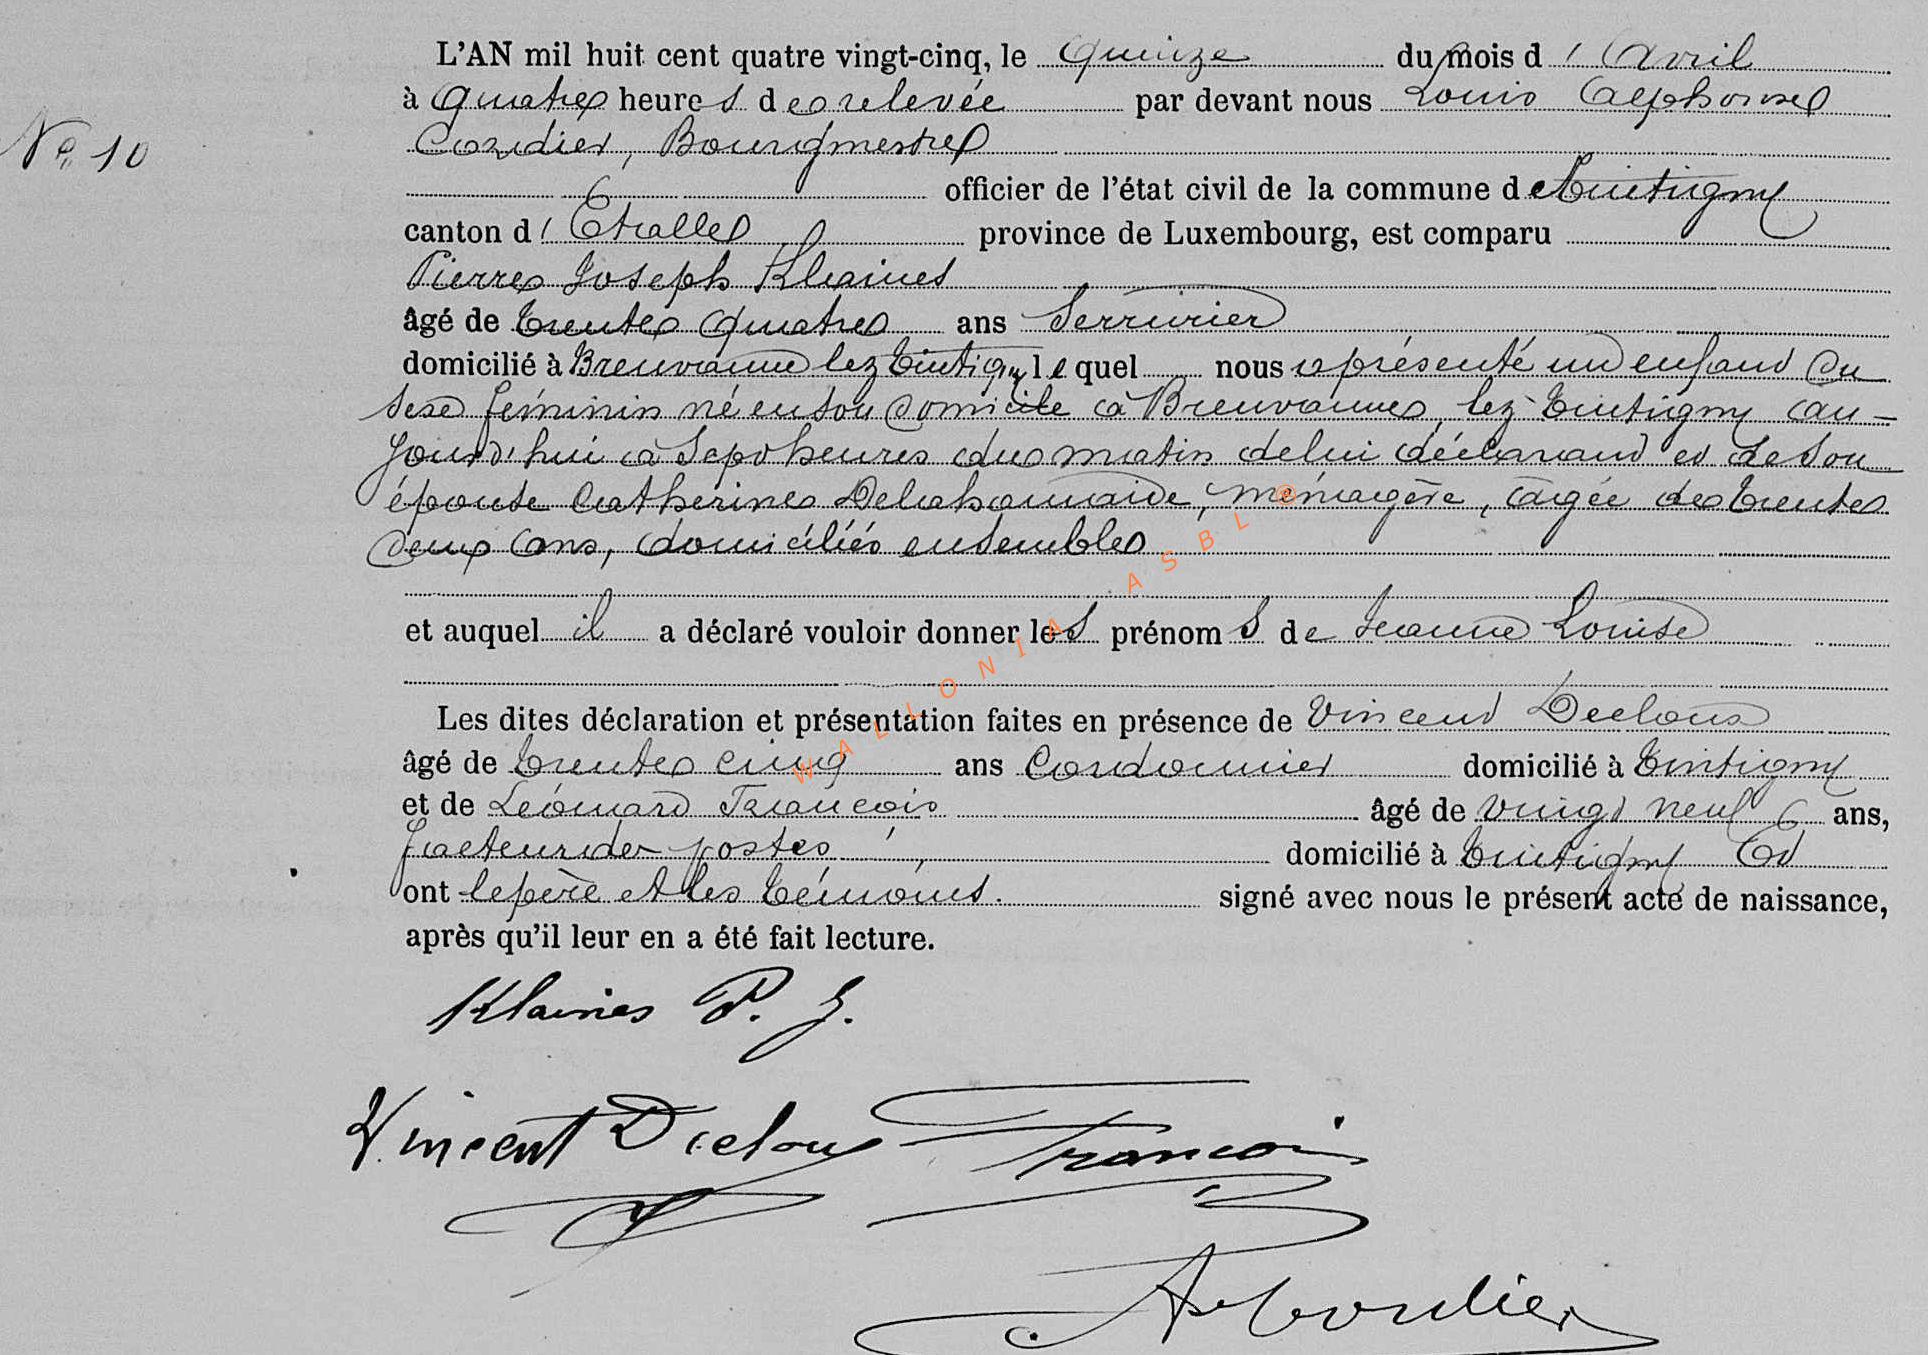 L'AN mil huit cent quatre vingt-cinq, le quinze du mois d'Avril
à quatre heures de relevée par devant nous Louis Alphonse
N° 10
Cordier, Bourgmestre
officier de l'état civil de la commune de Tintigny
canton d'Etalle province de Luxembourg, est comparu
Pierre Joseph Klaines
âgé de trente quatre ans Serrurier
domicilié à Breuvanne lez Tintigny lequel nous a présenté un enfant du
sexe féminin né en son domicile à Breuvanne lez Tintigny au-
jourd'hui à sept heures du matin de lui déclarant et de son
épouse Catherine ménagère, âgée de trente
deux ans, domiciliés ensemble
et auquel il a déclaré vouloir donner les prénoms de Jeanne Louise
Les dites déclaration et présentation faites en présence de Vincent Declous
âgé de trente cinq ans Cordonnier domicilié à Tintigny
et de Léonard François âgé de vingt neuf ans,
facteur des postes, domicilié à Tintigny Et
ont le père et les témoins. signé avec nous le présent acte de naissance,
après qu'il leur en a été fait lecture.
Klaines P. J.
Vincent Declous François
A Cordier
WALLONIA ASBL ©